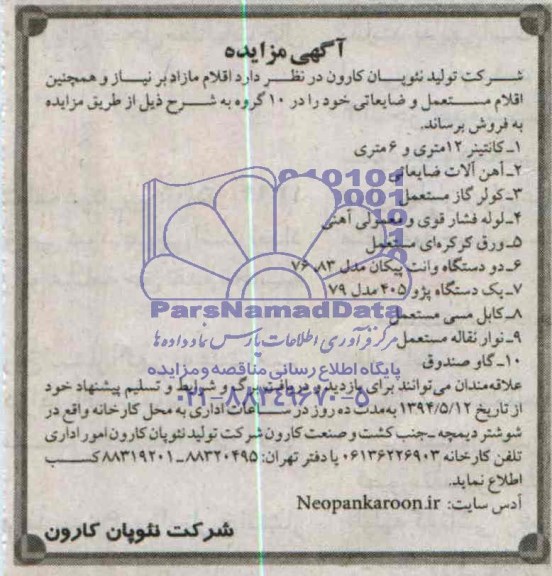 آگهی مزایده
شرکت تولید نئوپان کارون در نظر دارد اقلام مازاد بر نیاز و همچنین
اقلام مستعمل و ضایعاتی خود را در ۱۰ گروه به شرح ذیل از طریق مزایده
به فروش برساند.
۱ـ کانتینر ۱۲متری و ۶متری
۲ـ آهن آلات ضایعاتی
۳ـ کولر گاز مستعمل
۴ـ لوله فشار قوی و معمولی آهنی
۵ـ ورق کرکره‌ای مستعمل
۶ـ دو دستگاه وانت پیکان مدل ۸۳ـ ۷۶
۷ـ یک دستگاه پژو ۴۰۵ مدل ۷۹
۸ـ کابل مسی مستعمل
ParsNamadData
۹ـ نوار نقاله مستعمل
مرکز فرآوری اطلاعات پارس نماد داده ها
۱۰ـ گاو صندوق
پایگاه اطلاع رسانی مناقصه و مزایده
علاقه‌مندان می‌توانند برای بازدید و دریافت برگ و شرایط و تسلیم پیشنهاد خود
۰۲۱-۸۸۳۴۹۶۷۰-۵
از تاریخ ۱۳۹۴/۵/۱۲ به‌مدت ده روز در ساعات اداری به محل کارخانه واقع در
شوشتر دیمچه ـ جنب کشت و صنعت کارون شرکت تولید نئوپان کارون امور اداری
تلفن کارخانه ۰۶۱۳۶۲۲۶۹۰۳ یا دفتر تهران: ۸۸۳۲۰۴۹۵ـ ۸۸۳۱۹۲۰۱ کسب
اطلاع نماید.
آدس سایت: Neopankaroon.ir
شرکت نئوپان کارون